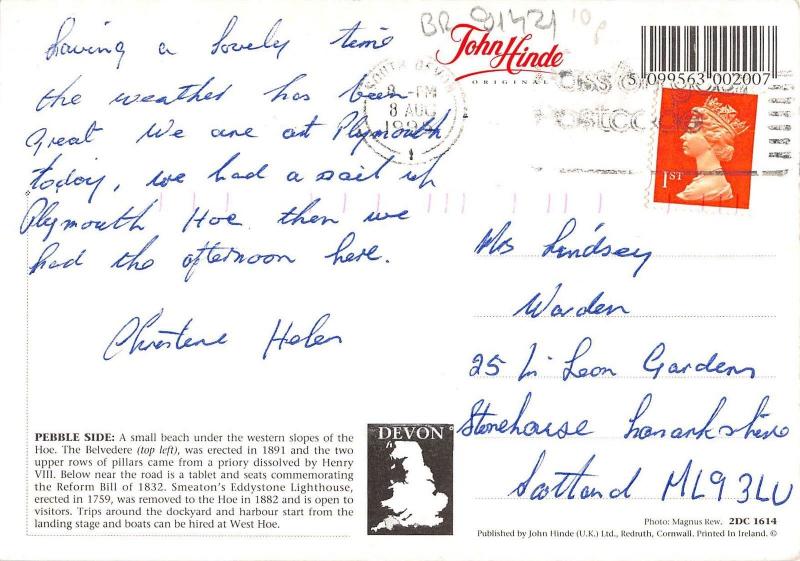 BR 91421 10p
John Hinde
ORIGINAL
5 099563 002007
SOUTH DEVON
8 - PM
8 AUG
1ST
having a lovely time
the weather has been
great we are at Plymouth
today, we had a sail up
Plymouth Hoe then we
had the afternoon here.
Christene Helen
Mrs Lindsey
Warden
25 Leon Gardens
Stonehouse Lanarkshire
Scotland ML9 3LU
PEBBLE SIDE: A small beach under the western slopes of the
Hoe. The Belvedere (top left), was erected in 1891 and the two
upper rows of pillars came from a priory dissolved by Henry
VIII. Below near the road is a tablet and seats commemorating
the Reform Bill of 1832. Smeaton's Eddystone Lighthouse,
erected in 1759, was removed to the Hoe in 1882 and is open to
visitors. Trips around the dockyard and harbour start from the
landing stage and boats can be hired at West Hoe.
DEVON
Photo: Magnus Rew. 2DC 1614
Published by John Hinde (U.K.) Ltd., Redruth, Cornwall. Printed In Ireland. ©